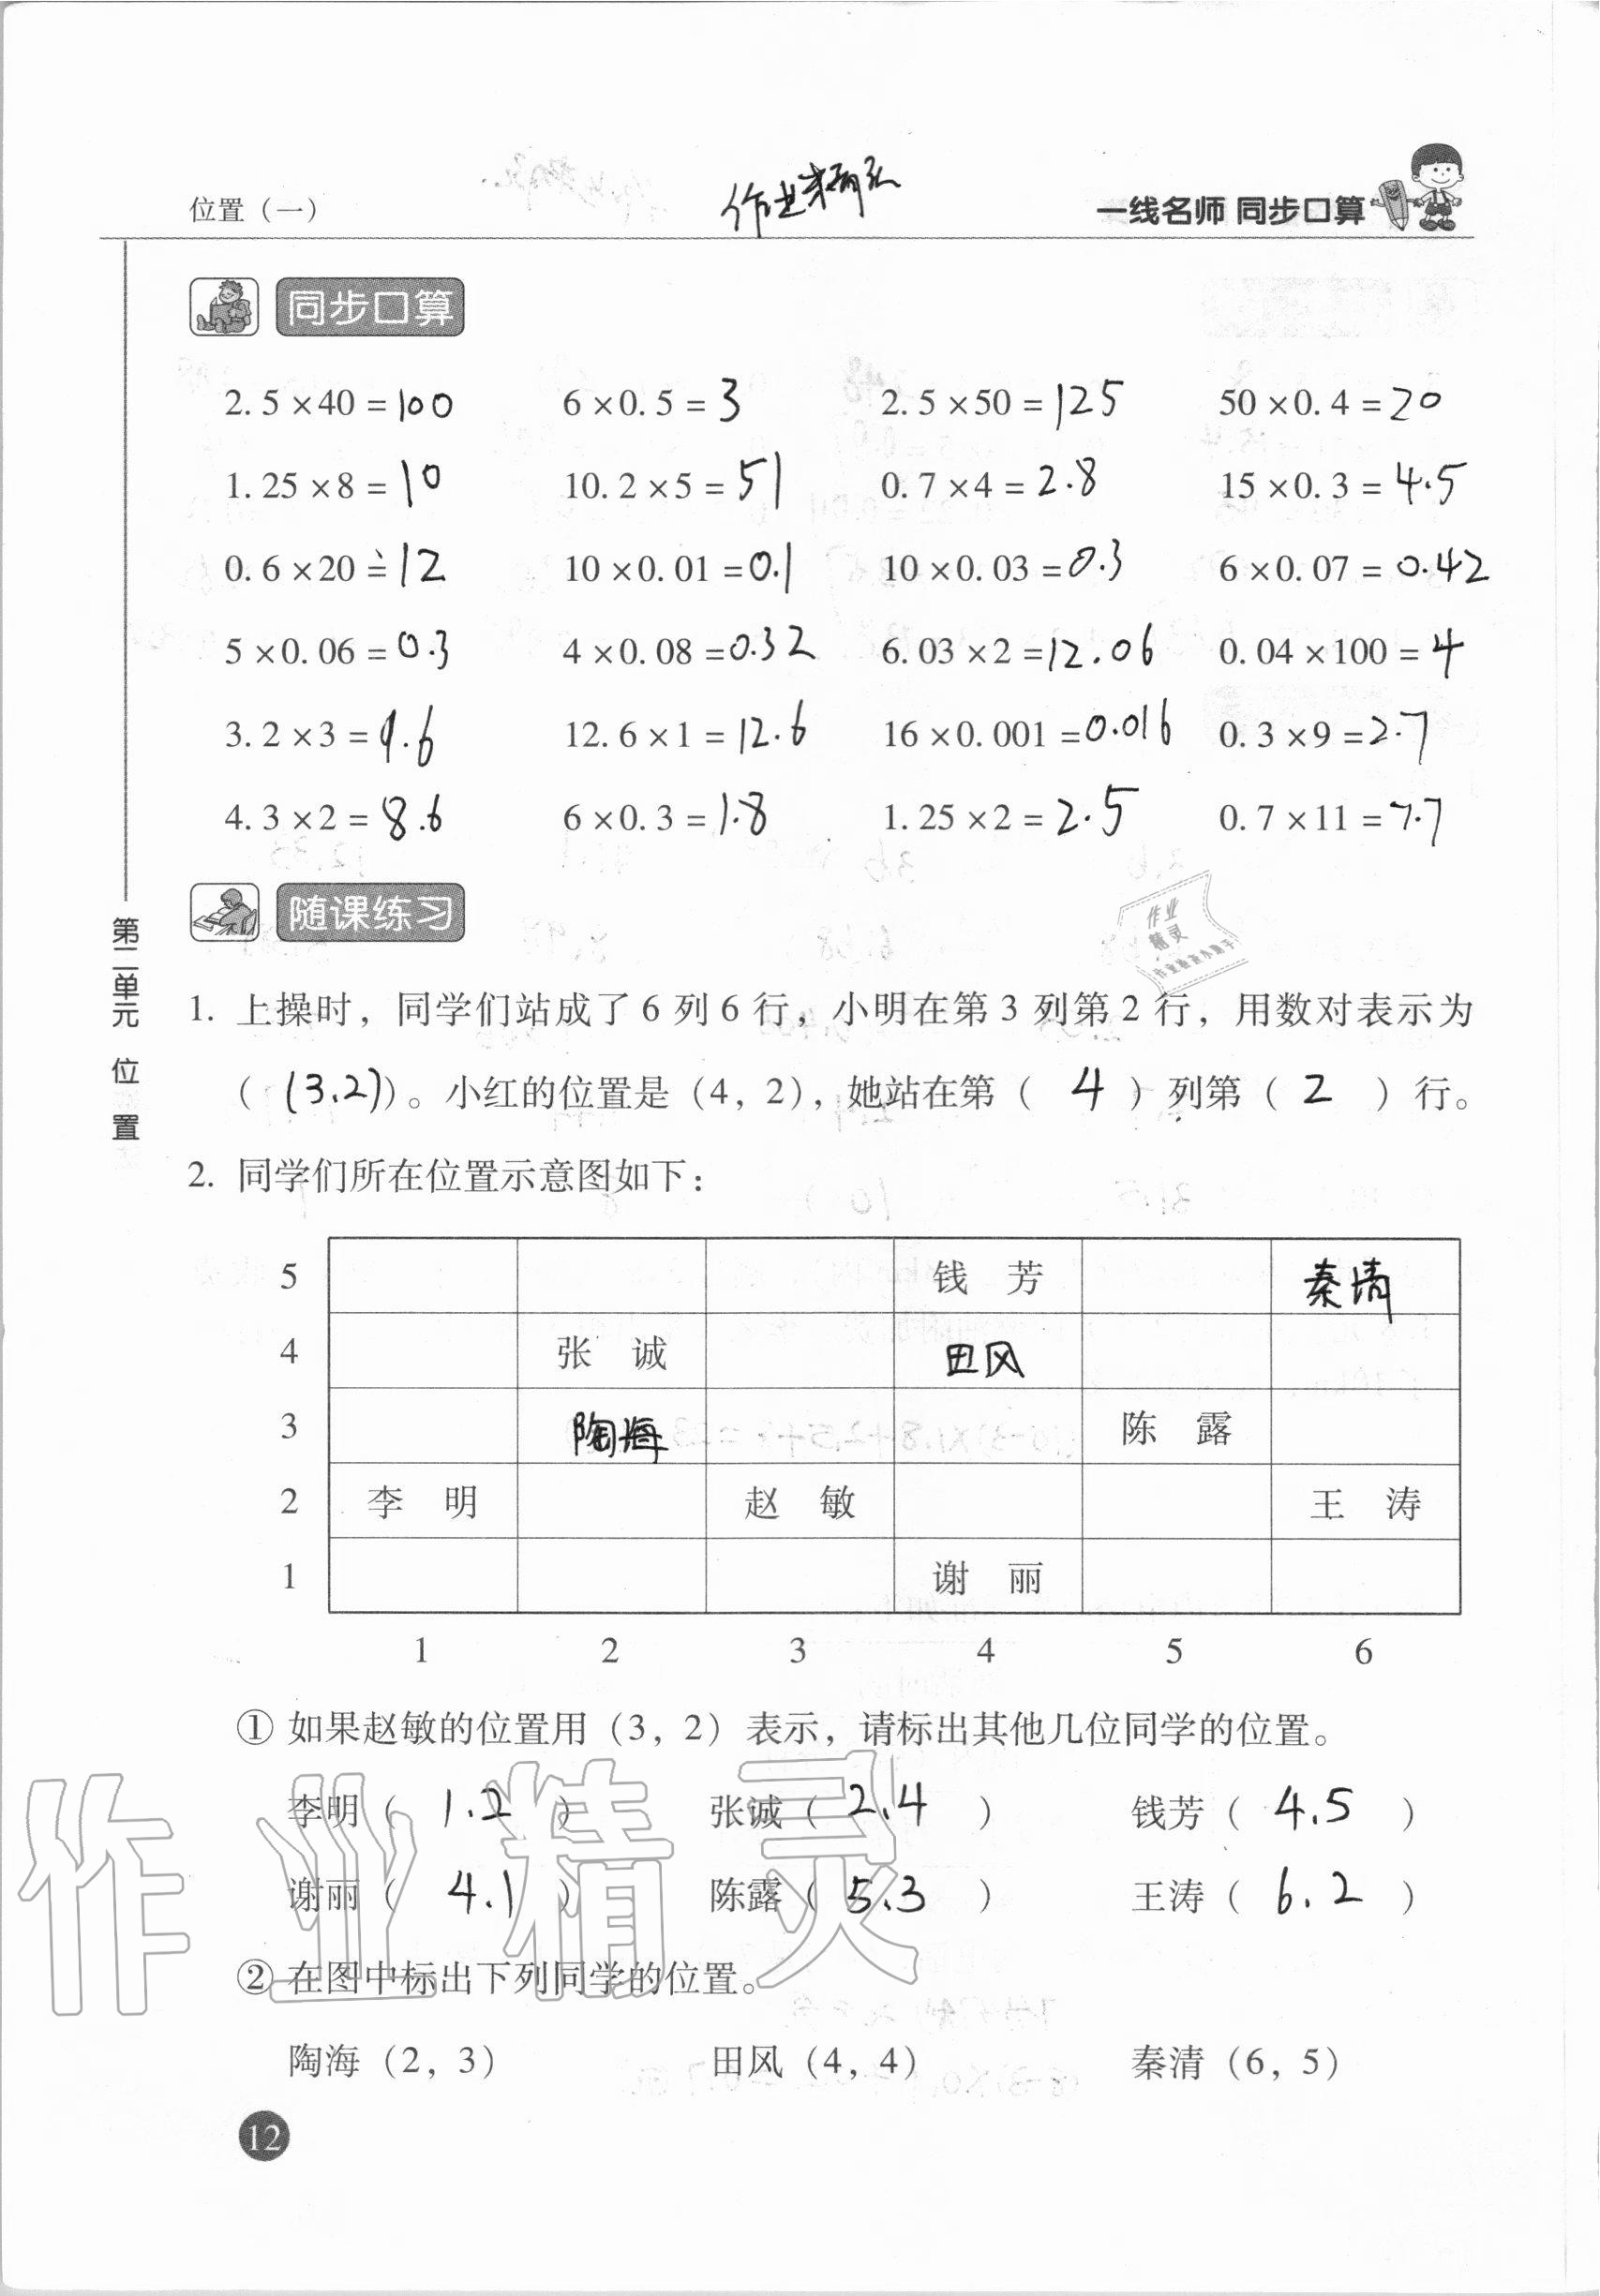 位置（一）
作业精灵
一线名师 同步口算
同步口算
2.5×40=100 6×0.5=3 2.5×50=125 50×0.4=20
1.25×8=10 10.2×5=51 0.7×4=2.8 15×0.3=4.5
0.6×20=12 10×0.01=0.1 10×0.03=0.3 6×0.07=0.42
5×0.06=0.3 4×0.08=0.32 6.03×2=12.06 0.04×100=4
3.2×3=9.6 12.6×1=12.6 16×0.001=0.016 0.3×9=2.7
4.3×2=8.6 6×0.3=1.8 1.25×2=2.5 0.7×11=7.7
随课练习
作业
精灵
第二单元 位置
1. 上操时，同学们站成了6列6行，小明在第3列第2行，用数对表示为
（(3.2)）。小红的位置是（4，2），她站在第（ 4 ）列第（ 2 ）行。
2. 同学们所在位置示意图如下：
5 钱 芳 秦清
4 张 诚 田风
3 陶海 陈 露
2 李 明 赵 敏 王 涛
1 谢 丽
1 2 3 4 5 6
① 如果赵敏的位置用（3，2）表示，请标出其他几位同学的位置。
李明（ 1.2 ） 张诚（ 2.4 ） 钱芳（ 4.5 ）
谢丽（ 4.1 ） 陈露（ 5.3 ） 王涛（ 6.2 ）
② 在图中标出下列同学的位置。
陶海（2，3） 田风（4，4） 秦清（6，5）
作业精灵
12